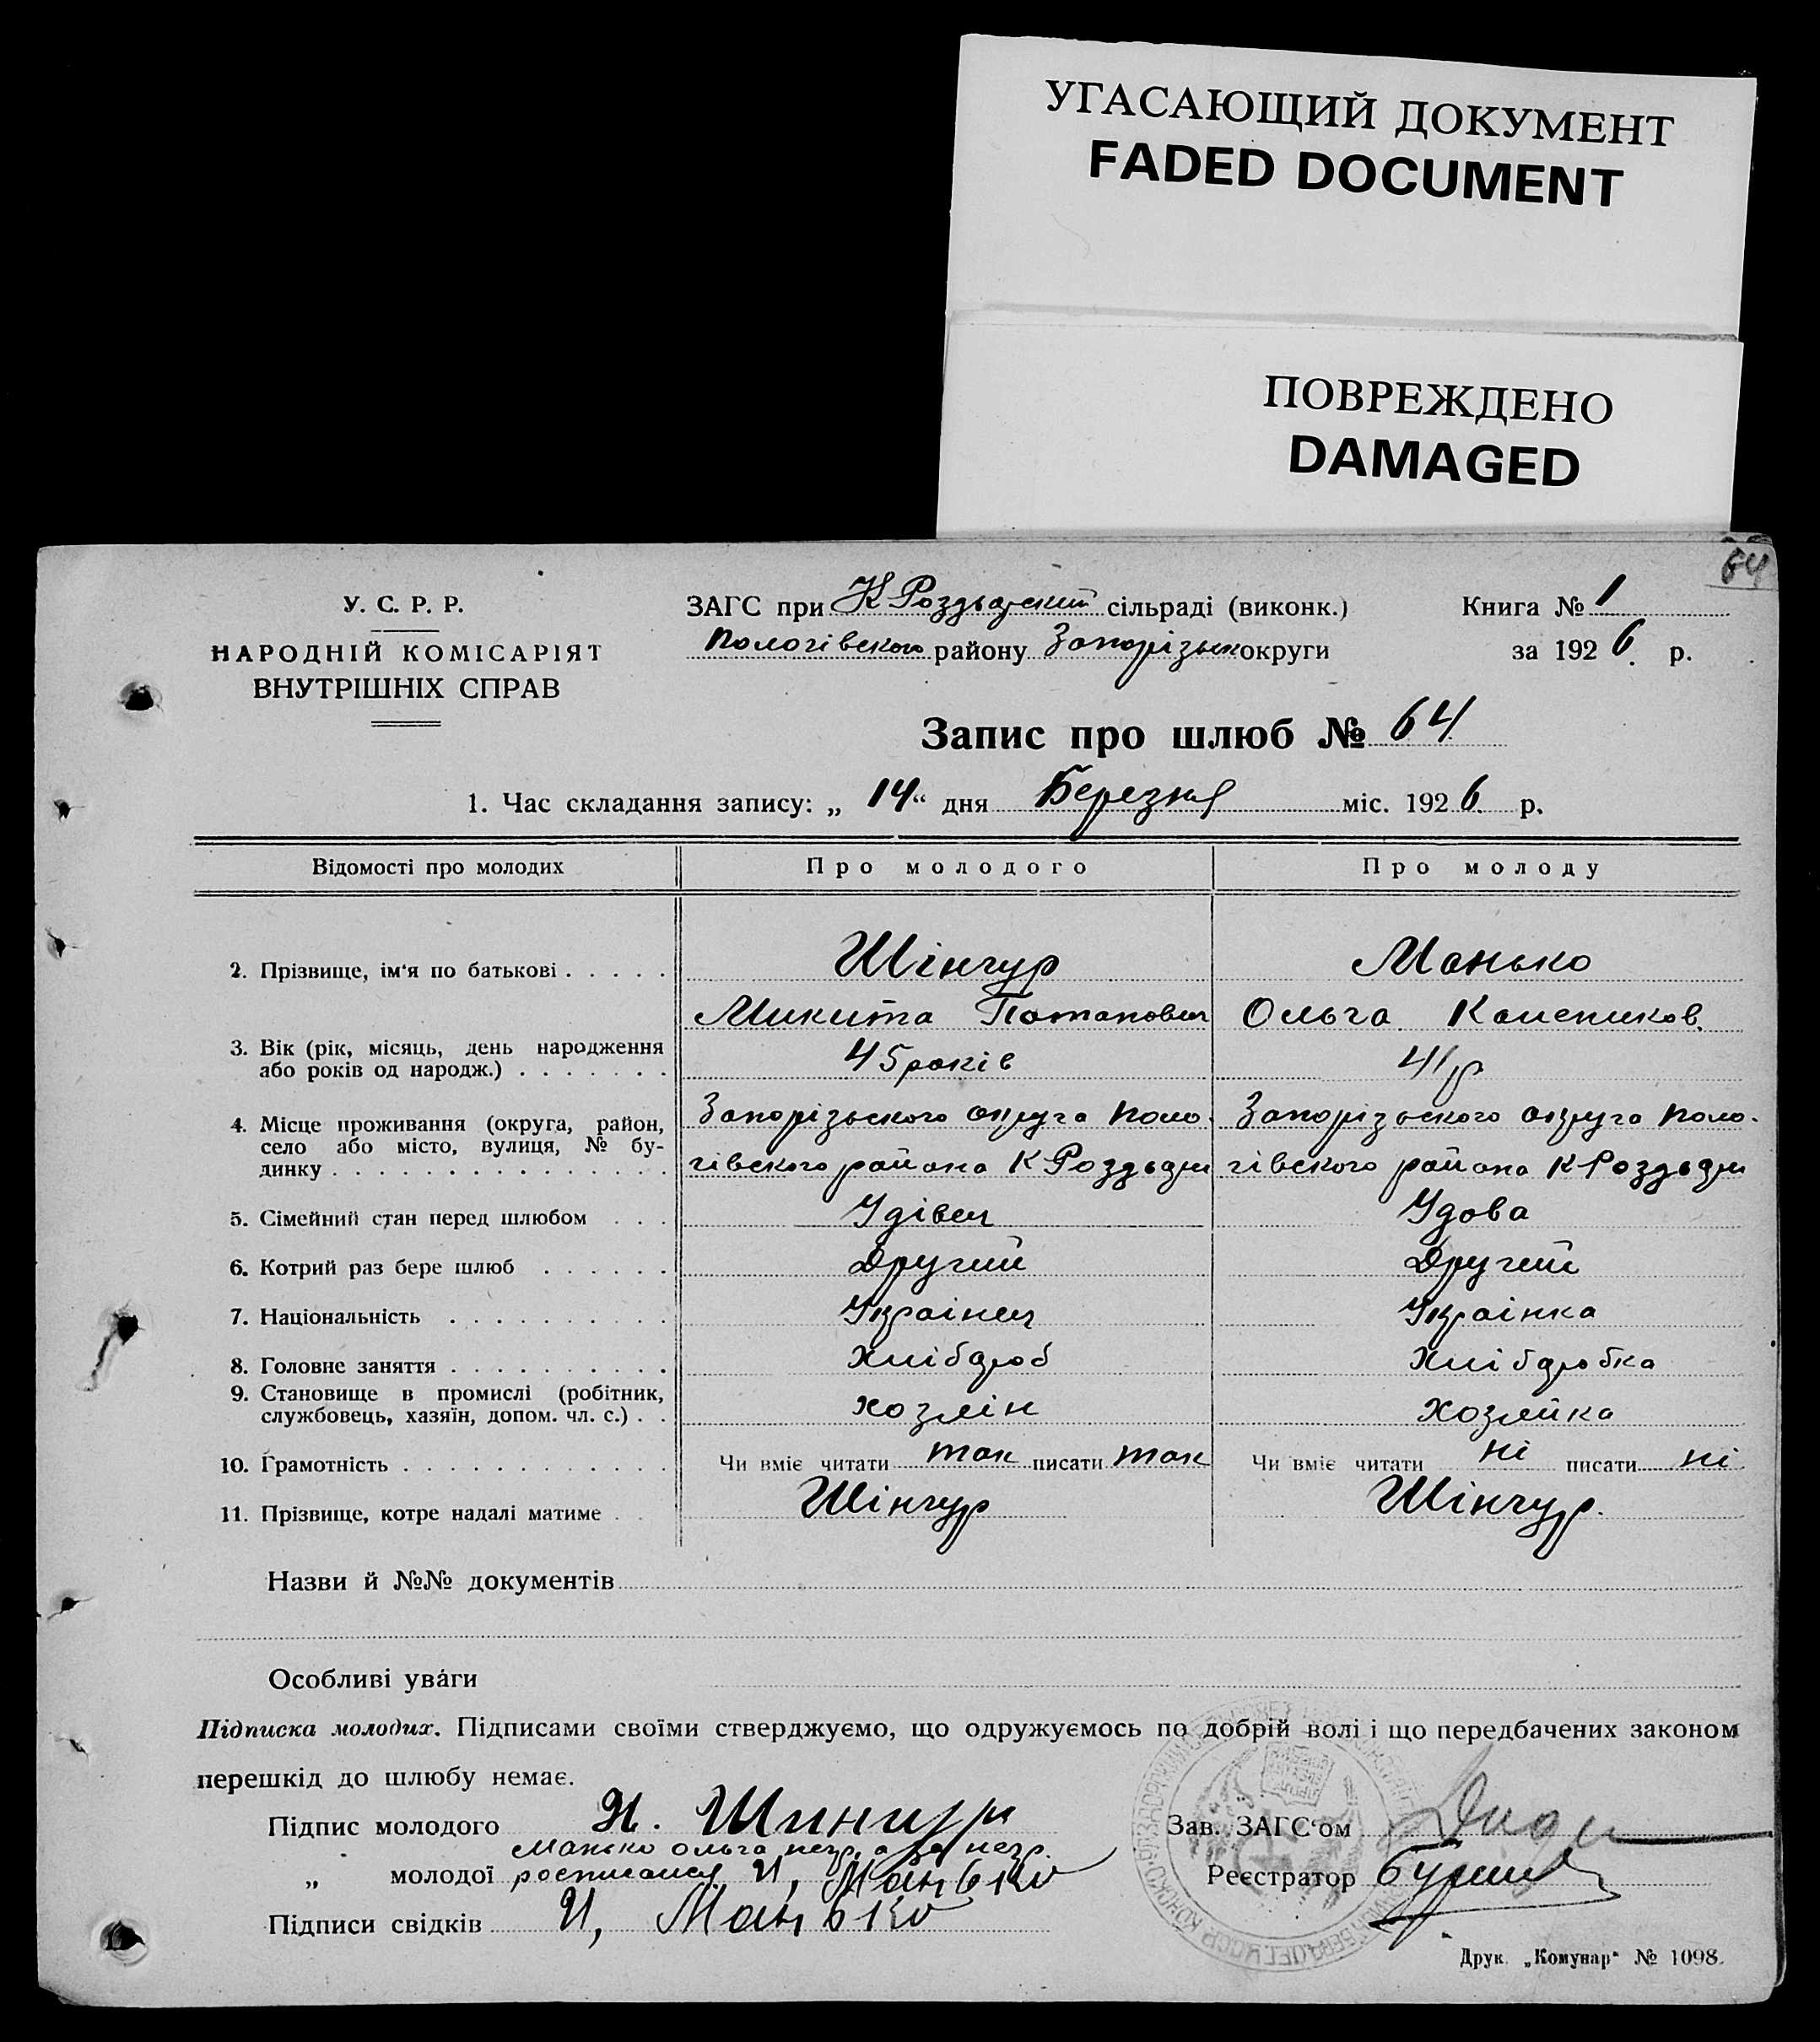 УГАСАЮЩИЙ ДОКУМЕНТ
FADED DOCUMENT
ПОВРЕЖДЕНО
DAMAGED
64
У. С. Р. Р.
НАРОДНІЙ КОМІСАРІЯТ
ВНУТРІШНІХ СПРАВ
ЗАГС при К Роздорский сільраді (виконк.)
Пологівского району Запорізьк округи
Книга № 1
за 1926 р.
Запис про шлюб № 64
1. Час складання запису: „ 14 “ дня Березня міс. 1926 р.
Відомості про молодих Про молодого Про молоду
2. Прізвище, ім‘я по батькові . . . . . Шінгур Манько
Микита Потапович Ольга
3. Вік (рік, місяць, день народження або років од народж.) . . . . . . . 45 років 41 р
4. Місце проживання (округа, район, село або місто, вулиця, № будинку . . . . . . . . . . . . . . . Запорізьского округа Поло- Запорізьского округа Поло-
гівского района К Роздори гівского района К Роздори
5. Сімейний стан перед шлюбом . . . Удівец Удова
6. Котрий раз бере шлюб . . . . . . Другий Другий
7. Національність . . . . . . . . . . Українец Українка
8. Головне заняття . . . . . . . . . . Хлібороб Хліборобка
9. Становище в промислі (робітник, службовець, хазяїн, допом. чл. с.) . . хозяін Хозяйка
10. Грамотність . . . . . . . . . . . . Чи вміє читати так писати так Чи вміє читати ні писати ні
11. Прізвище, котре надалі матиме . . Шінгур Шінгур.
Назви й №№ документів
Особливі уваги
Підписка молодих. Підписами своїми стверджуємо, що одружуємось по добрій волі і що передбачених законом
перешкід до шлюбу немає.
Підпис молодого Н. Шингур
Манько Ольга негр. а за негр.
„ молодої росписался И, Манько
Підписи свідків И, Манько
Зав. ЗАГС‘ом
Реєстратор
Друк. „Комунар“ № 1098.